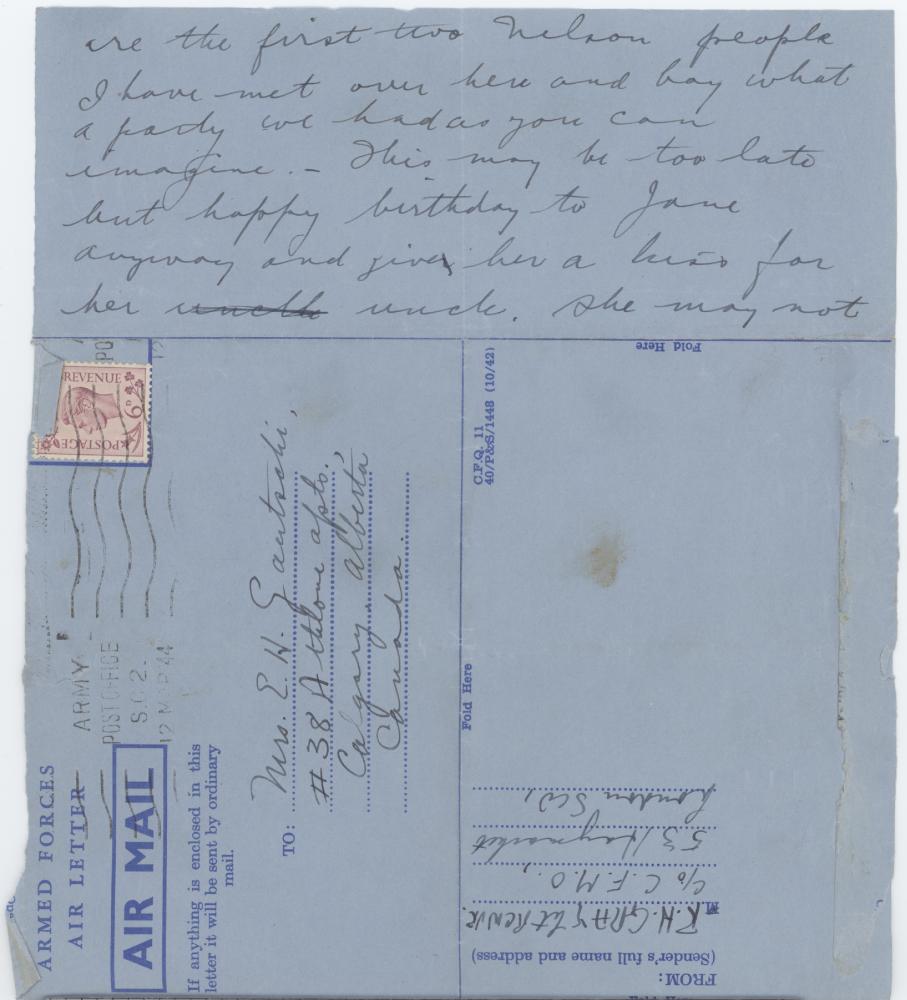 are the first two Nelson people
I have met over here and boy what
a party we had as you can
imagine. - This may be too late
but happy birthday to Jane
anyway and give her a kiss for
her uncle. She may not
Fold Here
REVENUE
6D
POSTAGE
ARMY
POST OFFICE
S.C 2.
12 MAR 44
ARMED FORCES
AIR LETTER
AIR MAIL
If anything is enclosed in this
letter it will be sent by ordinary
mail.
TO:
Mrs. E. H. Gautschi,
#38 Athlone apts.,
Calgary, Alberta
Canada.
C.F.Q. 11
40/P&S/1448 (10/42)
Fold Here
FROM:
(Sender's full name and address)
R.H. GRAY Lt RCNVR.
c/o C.F.M.O.,
53 Haymarket
London SW1